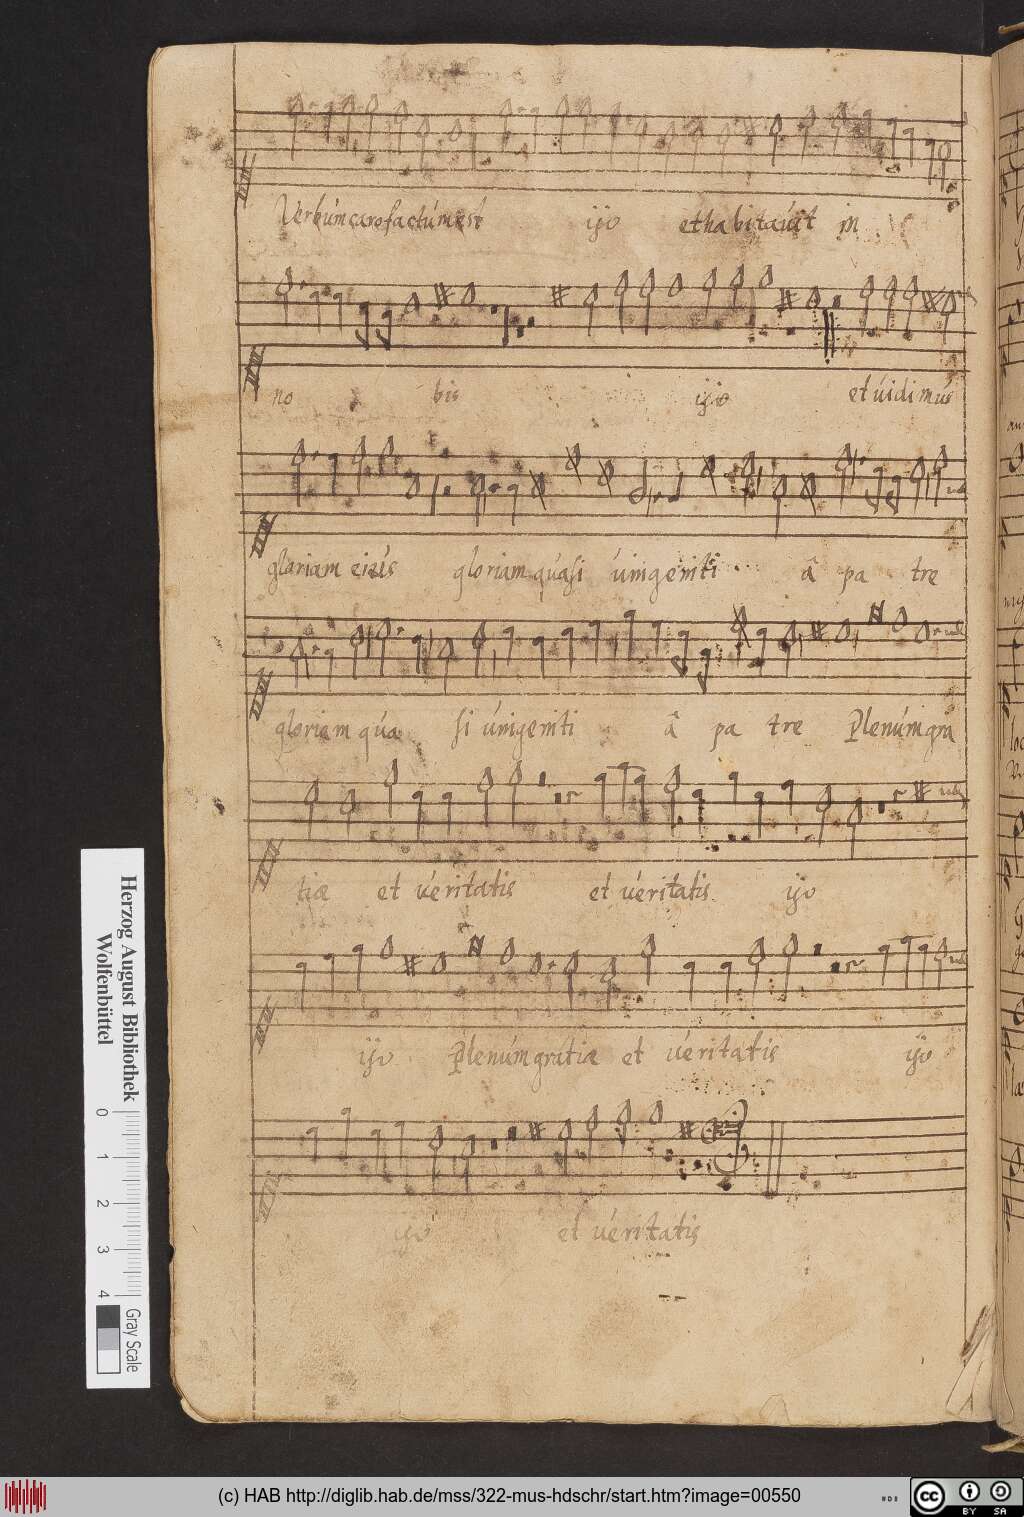 Verbúm caro factúm est ijo et habitaúit in
no bis ijo et úidi mús
gloriam eiús gloriam quási únigeniti â pa tre
gloriam qúa si únigeniti â pa tre Plenúm gra
tiæ et úeritatis et úeritatis ijo
ijo Plenúm gratiæ et úeritatis ijo
ijo et úeritatis
Herzog August Bibliothek
Wolfenbüttel
0 1 2 3 4
Gray Scale
(c) HAB http://diglib.hab.de/mss/322-mus-hdschr/start.htm?image=00550
cc BY SA